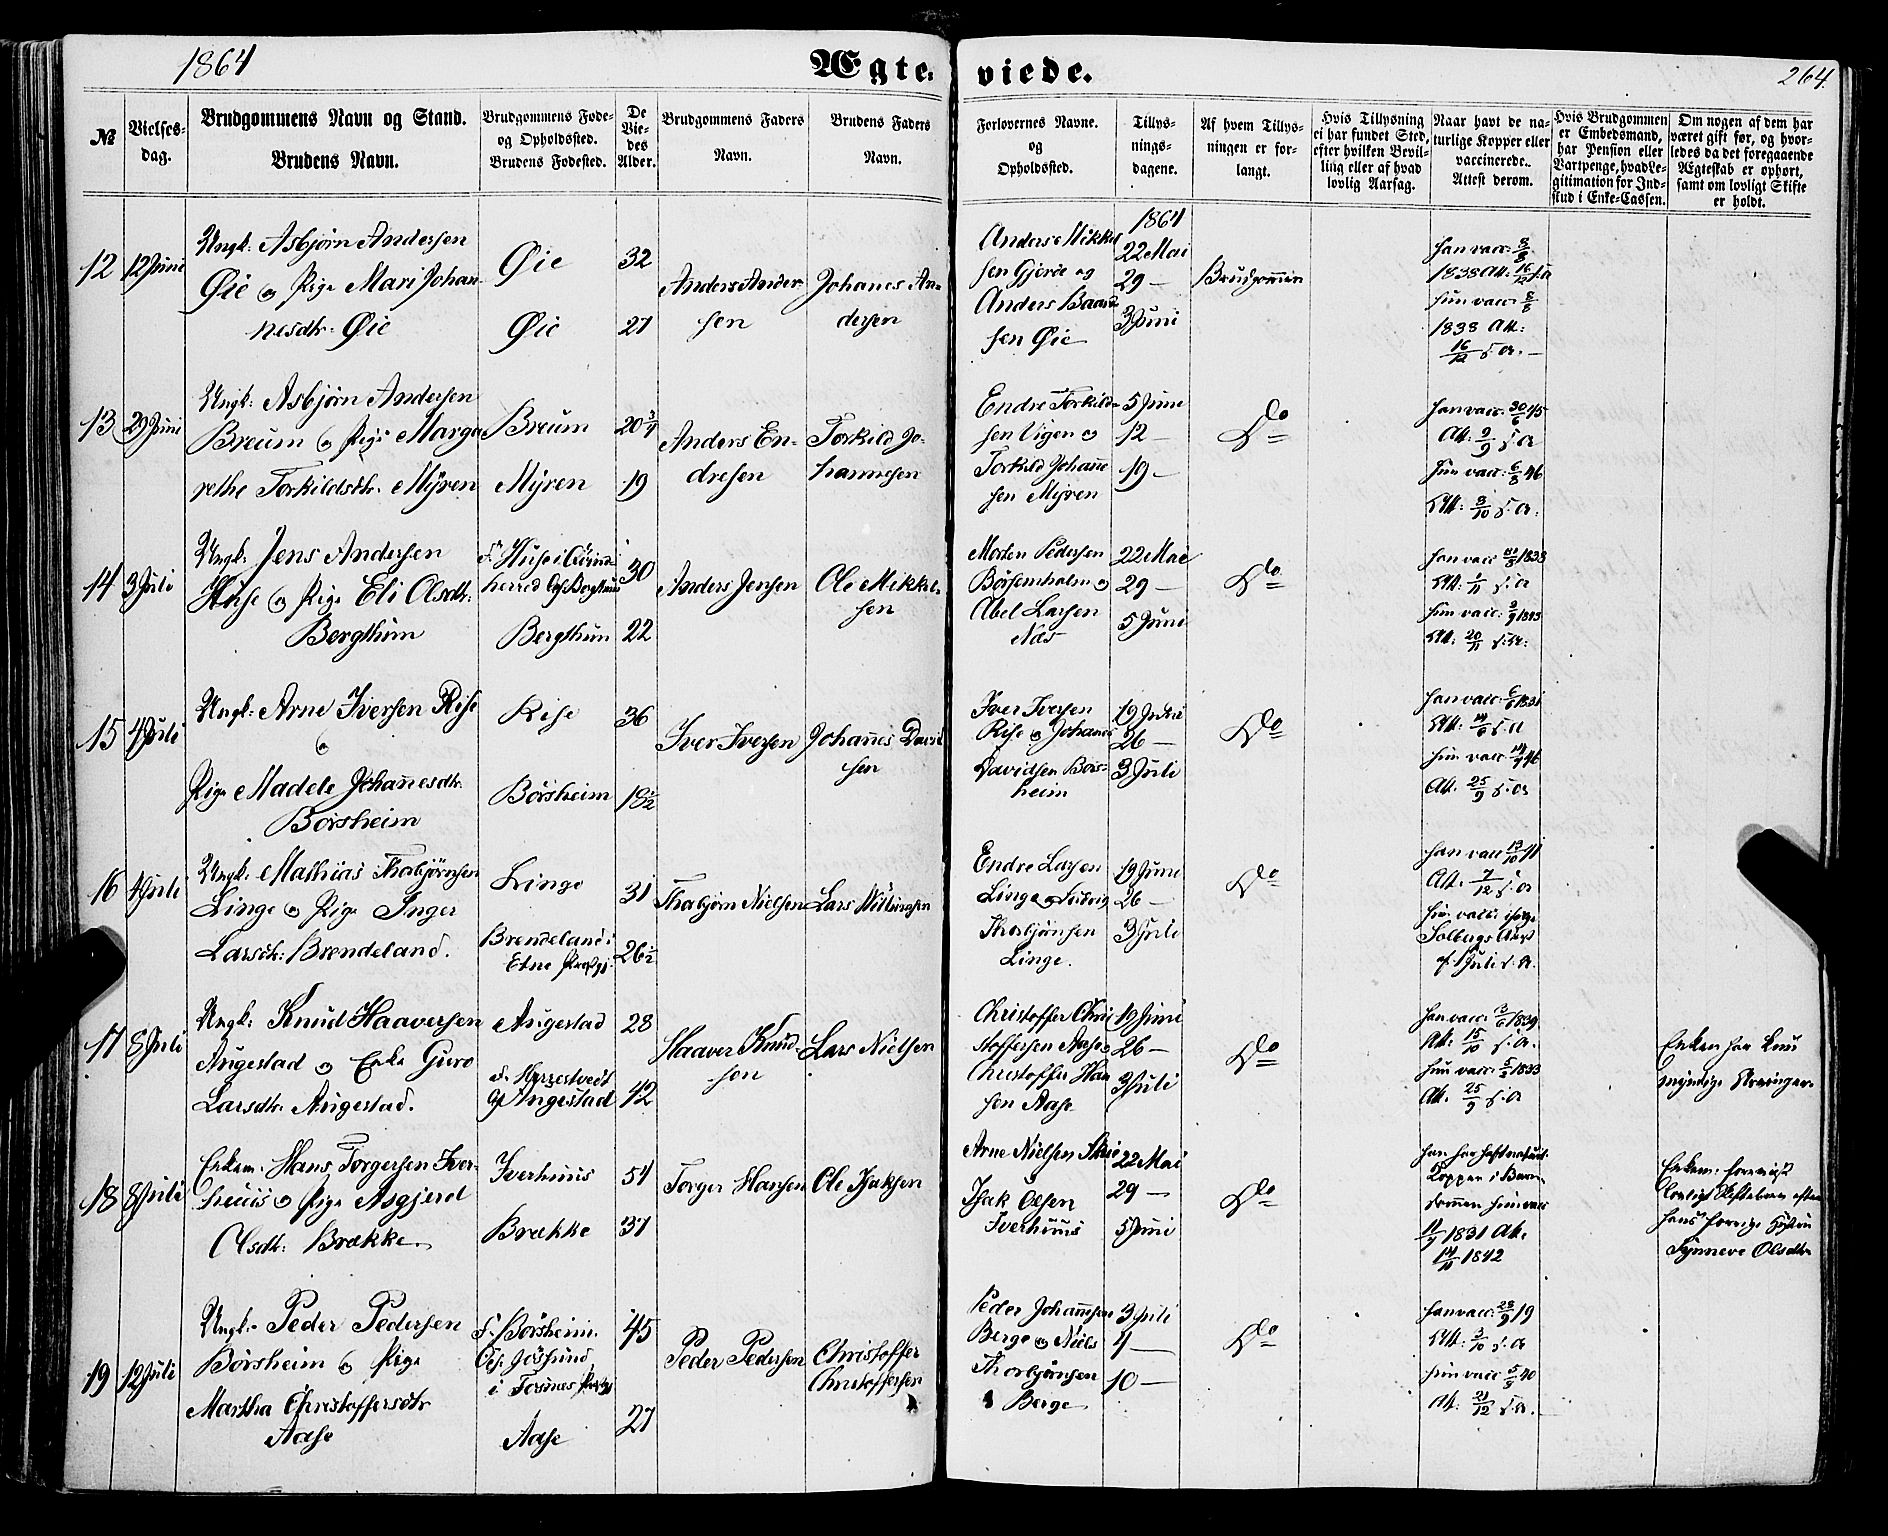 1864
Ægte-
viede.
264.
№
Vielses-
dag.
Brudgommens Navn og Stand.
Brudens Navn.
Brudgommens Føde-
og Opholdssted.
Brudens Fødested.
De
Vie-
des
Alder.
Brudgommens Faders
Navn.
Brudens Faders
Navn.
Forlovernes Navne.
og
Opholdssted.
Tillys-
nings-
dagene.
Af hvem Tillys-
ningen er for-
langt.
Hvis Tillysning
ei har fundet Sted,
efter hvilken Bevil-
ling eller af hvad
lovlig Aarsag.
Naar havt de na-
turlige Kopper eller
vaccinerede.
Attest derom.
Hvis Brudgommen
er Embedsmand,
har Pension eller
Vartpenge, hvad Le-
gitimation for Ind-
skud i Enke-Cassen.
Om nogen af dem har
været gift før, og hvor-
ledes da det foregaaende
Ægteskab er ophørt,
samt om lovligt Skifte
er holdt.
12
12 Juni
Ungk: Asbjørn Andersen
Øie og Pige Mari Johan-
nesdtr. Øie
Øie
Øie
32
27
Anders Ander-
sen
Johanes An-
dersen
Anders Mikkel
sen Gjerde og
Anders Baard
sen Øie
1864
22 Mai
29 —
3 Juni
Brudgommen
han vacc: 8/8
1838 Att: 16/12 s.a
hun vacc: 8/8
1838 Att:
16/12 s.a. —
13
29 Juni
Ungk: Asbjørn Andersen
Breum og Pige Marga
rethe Torkildsdtr. Myren
Breum
Myren
20 3/4
19
Anders En-
dresen
Torkild Jo-
hannesen
Endre Torkild-
sen Vigen og
Torkild Johane
sen Myren
5 Juni
12 —
19 —
Do
han vacc: 30/6 45
Att: 9/9 s.a
hun vacc: 6/8 46
Att: 3/10 s.a.
14
3 Juli
Ungk: Jens Andersen
Huse og Pige Eli Olsdtr.
Bergthun
F. Huse i Qvinn
herred Op. Bergthun
Bergthun
30
22
Anders Jensen
Ole Mikkel-
sen
Morten Pedersen
Børsemholm og
Abel Larsen
Næs
22 Mai
29 —
5 Juni
Do
15
4 Juli
Ungk: Arne Iversen Rise
og
Pige Madele Johanesdtr.
Børsheim
Rise
Børsheim
36
18 1/2
Iver Iversen
Johanes David
sen
Iver Iversen
Rise og Johanes
Davidsen Børs-
heim
19 Juni
26 —
3 Juli
Do
hun vacc: 14/7 46
Att. 25/9 s.a
16
4 Juli
Ungk: Mathias Thorbjørnsen
Linge og Pige Inger
Larsdtr: Brendeland.
Linge
Brendeland i
Etne Præstgj:
31
26 1/2
Thorbjørn Nielsen
Lars
Endre Larsen
Linge og Ludvig
Thorbjørnsen
Linge.
19 Juni
26 —
3 Juli
Do
Att. 7/12 s.a
hun vacc: ifølge
Solbergs Attest
af 1 Juli s.a.
17
8 Juli
Ungk: Knud Haaversen
Augestad og Enke Guro
Larsdtr. Augestad.
Augestad
Op Augestad
28
42
Haaver Knud-
sen
Lars Nielsen
Christoffer Chri
stoffersen Aase og
Christoffer Han
sen Aase
19 Juni
26 —
3 Juli
Do
han vacc: 3/6 1839
Att: 15/10 s.a.
hun vacc: 5/2 1833
Att. 25/9 s.a
Enken har kun
myndige Arvinger
18
8 Juli
Enkem. Hans Torgersen Iver-
huus og Pige Asgjerd
Olsdtr: Brække
Iverhuus
Brække
54
37
Torger Hansen
Ole Isaksen
Arne Nielsen
Isak Olsen
Iverhuus
22 Mai
29 —
5 Juni
Do
han har havt naturl:
Kopper i Barn-
dommen hun vacc
11/7 1831 Att.
14/11 1842
Enkem: foreviist
lovligt Skiftebrev efter
hans forrige Hustru
Synneve Olsdtr
19
12 Juli
Ungk: Peder Pedersen
Børsheim og Pige
Martha Christoffersdtr
Aase
F. Børsheim.
Op. Jøssund
i Fosnes Præstgj
Aase
45
27
Peder Pedersen
Christoffer
Christoffersen
Peder Johannsen
Berge og Niels
Thorbjørnsen
Berge
3 Juli
4 —
10 —
Do
han vacc: 28/9 19
Att: 3/10 s.a
hun vacc 5/8 40
Att: 21/12 s.a.